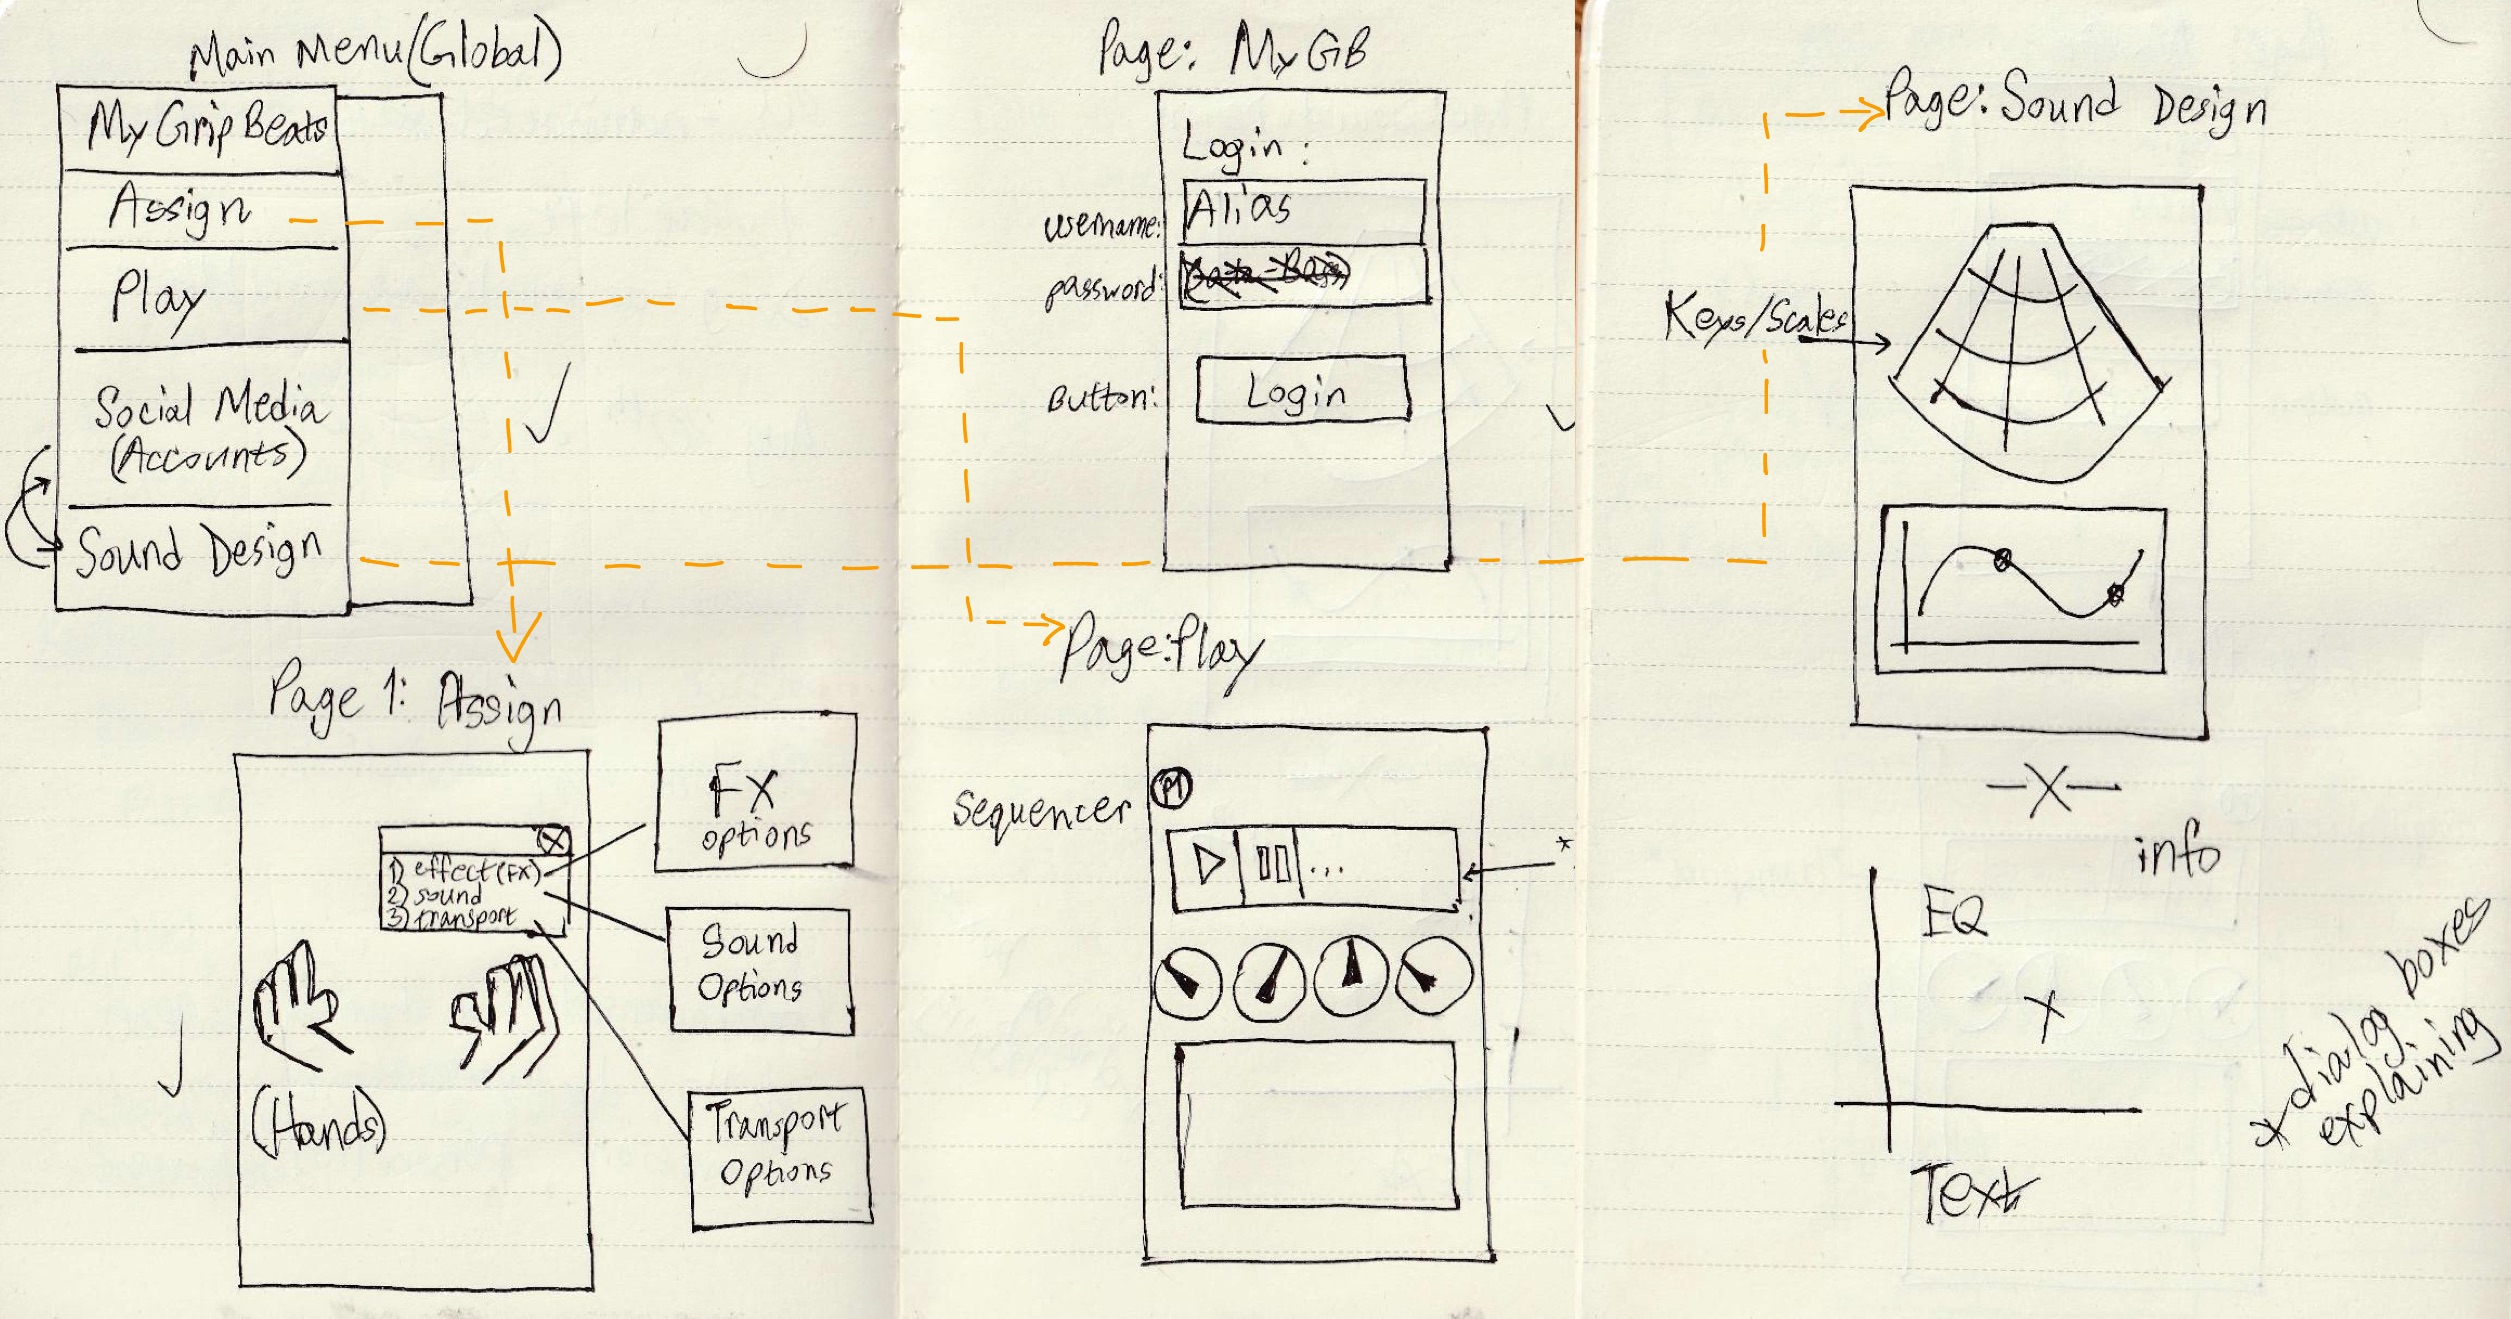 Main Menu (Global)
My Grip Beats
Assign
Play
Social Media
(Accounts)
Sound Design
Page 1: Assign
1) effect (FX)
2) sound
3) transport
(Hands)
FX
options
Sound
Options
Transport
Options
Page: My GB
Login :
username:
Alias
password:
Button:
Login
Page: Play
Sequencer
...
*
Page: Sound Design
Keys/Scales
-X-
info
EQ
X
Text
* dialog boxes
explaining